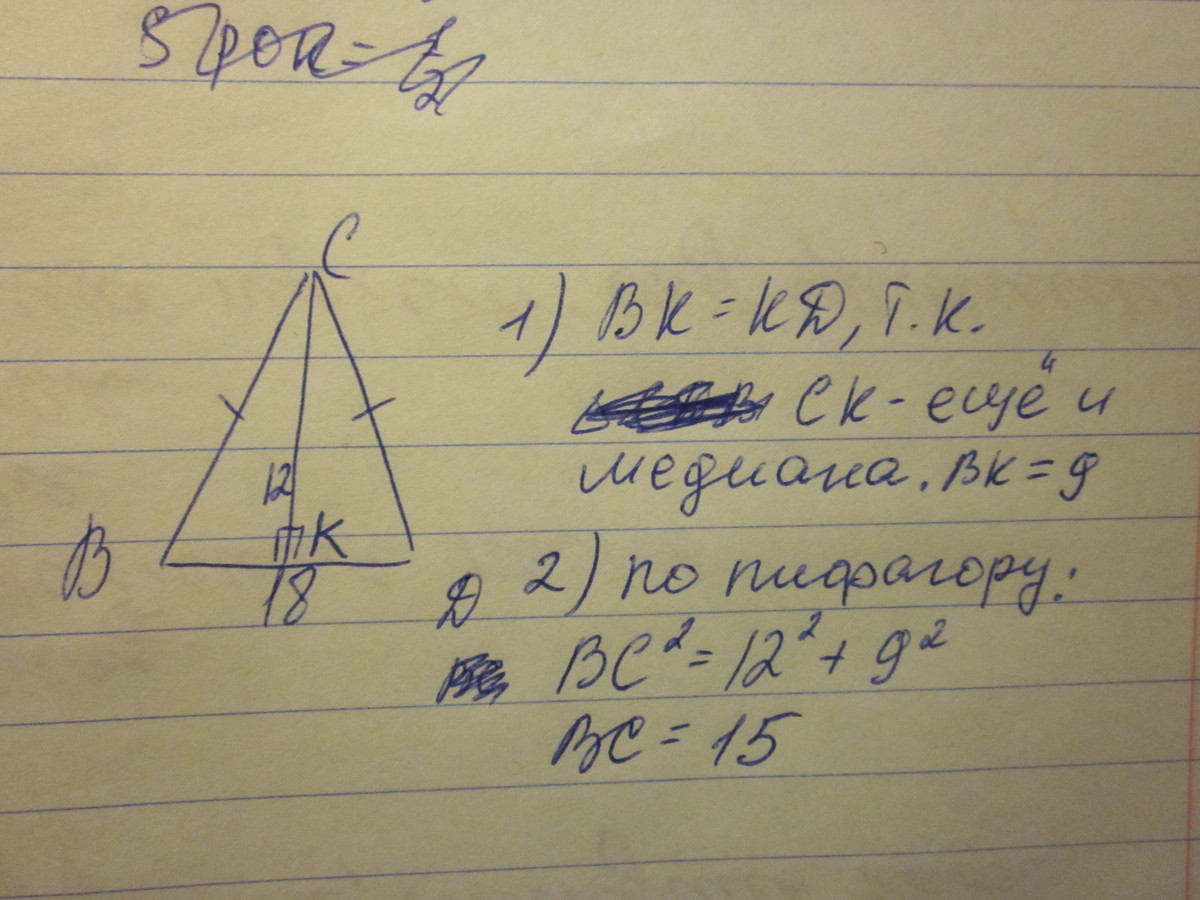 C
12
K
B
18
D
1) BK = KD, т.к.
CK - ещё и
медиана. BK = 9
2) по пифагору:
BC² = 12² + 9²
BC = 15